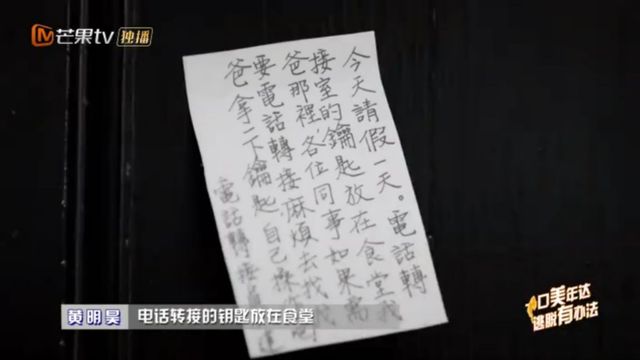 芒果tv 独播
今天請假一天。電話轉
接室的鑰匙放在食堂我
爸那裡,各位同事如果需
要電話轉接麻煩去找我
爸拿一下鑰匙,自己操作
電話轉接員
黄明昊 电话转接的钥匙放在食堂
口美年达
逃脱有办法